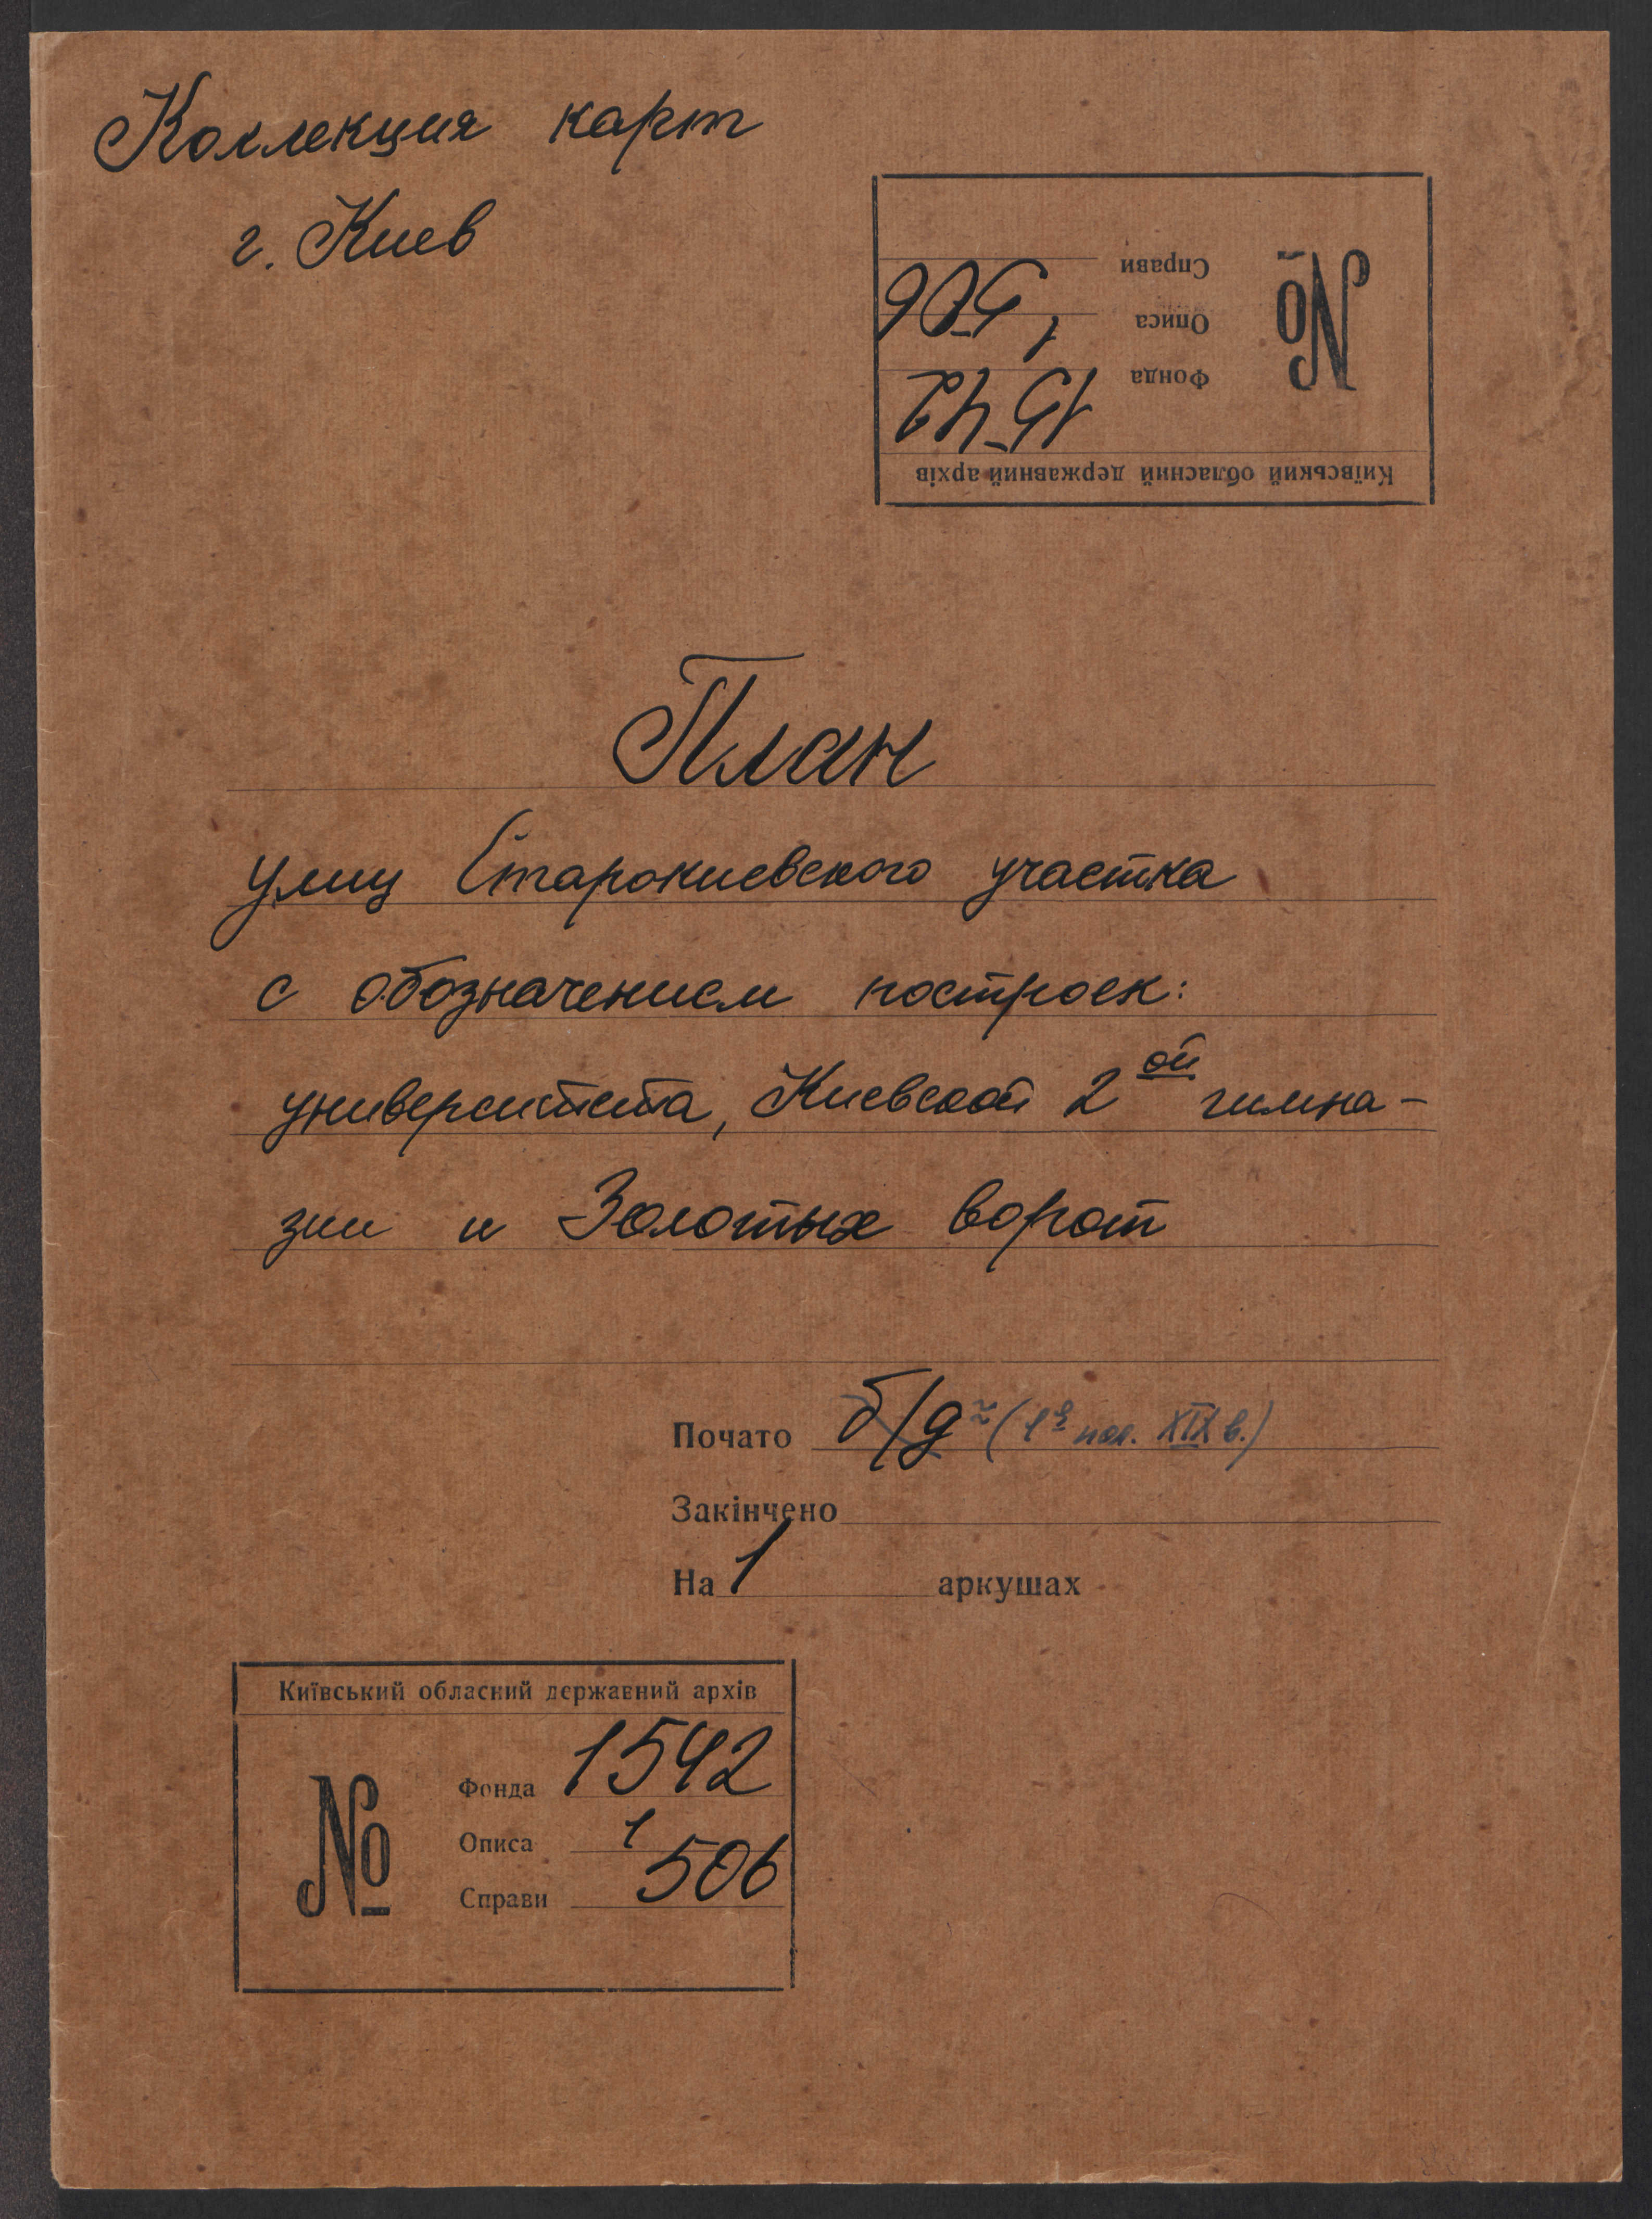 Коллекция карт
г. Киев
Київський обласний державний архів
№
Фонда 1542
Описа 1
Справи 506
План
улиц Старокиевского участка
с обозначением построек:
университета, Киевской 2ой гимна-
зии и Золотых ворот
Почато б/д (1я пол. XIX в.)
Закінчено
На 1 аркушах
Київський обласний державний архів
№
Фонда 1542
Описа 1
Справи 506